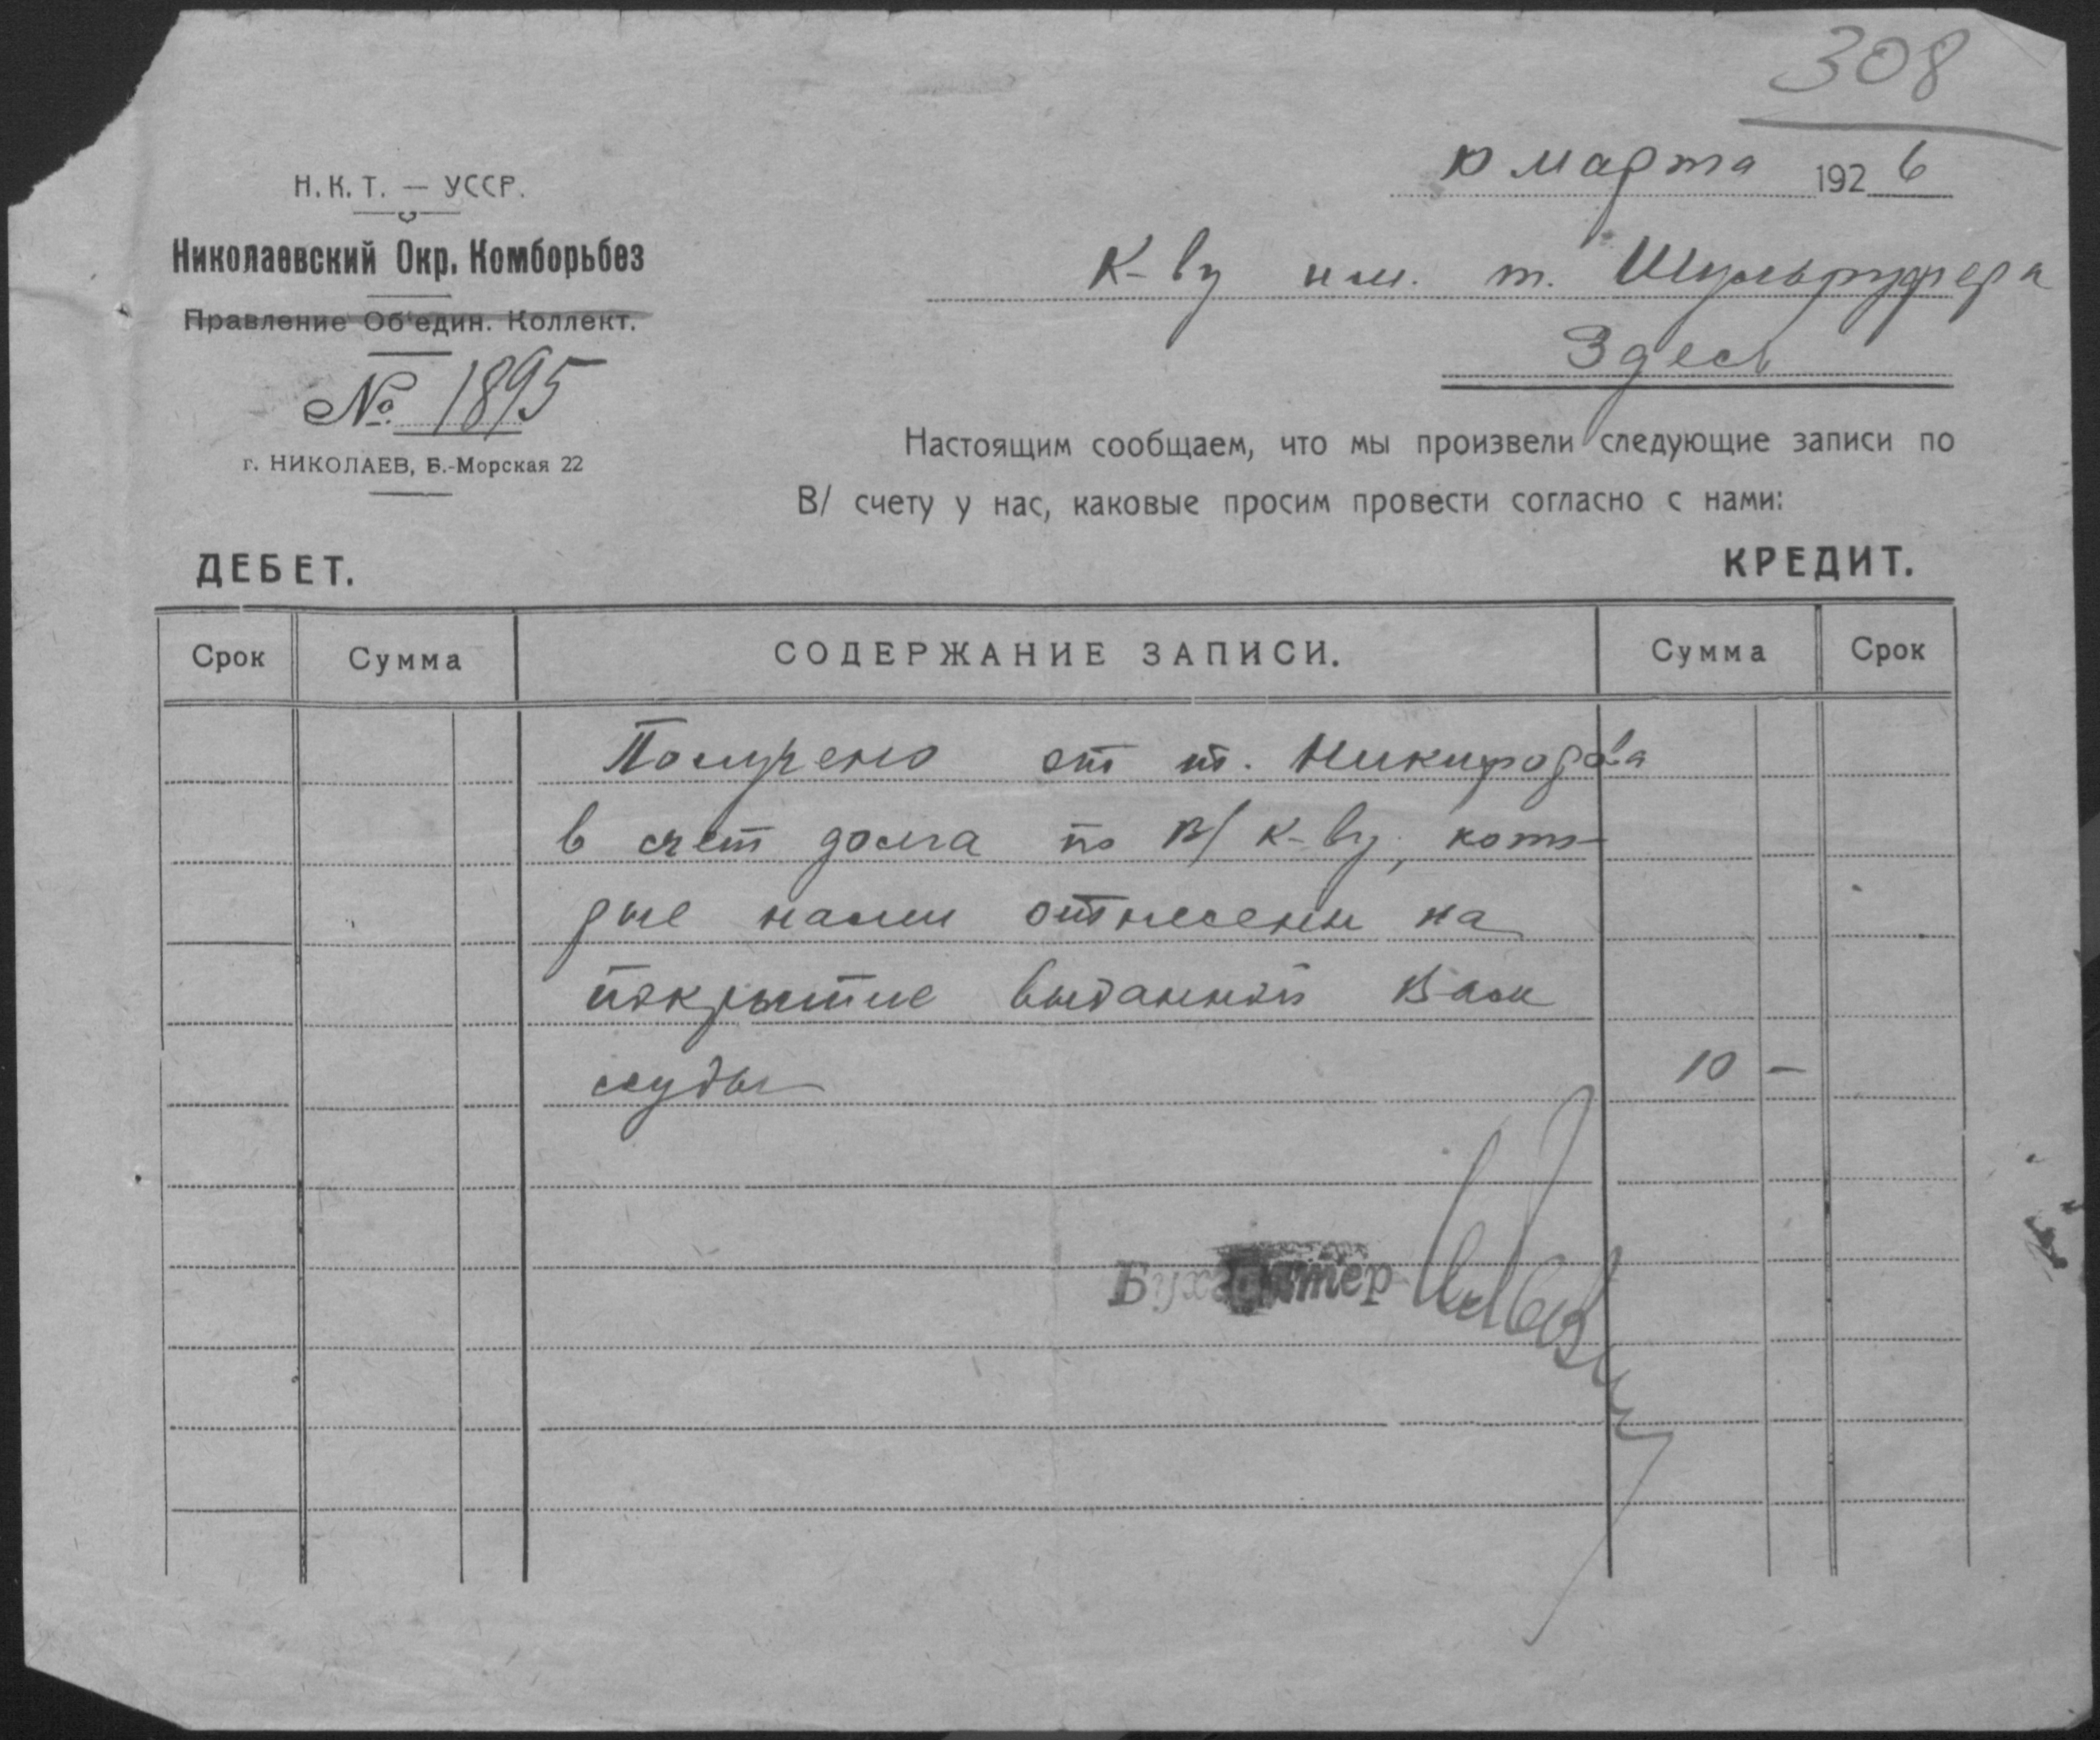 308
10 марта 1926
Н. К. Т. — УССР.
Николаевский Окр. Комборьбез
К-ву им. т. Шульрудера
Правление Об'един. Коллект.
Здесь
№ 1895
г. НИКОЛАЕВ, Б.-Морская 22
Настоящим сообщаем, что мы произвели следующие записи по
В/ счету у нас, каковые просим провести согласно с нами:
ДЕБЕТ. КРЕДИТ.
Срок Сумма СОДЕРЖАНИЕ ЗАПИСИ. Сумма Срок
Получено от т. Никифорова
в счет долга по В/ к-ву, кото-
рые нами отнесены на
покрытие выданной Вам
ссуды 10 —
Бухгалтер